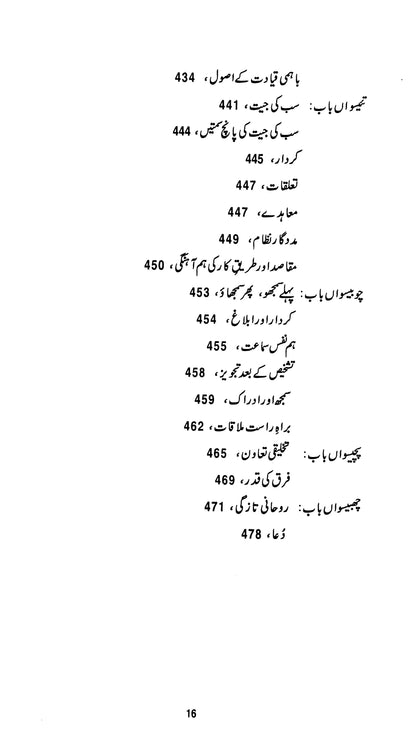 باہمی قیادت کے اصول، 434
تیئیسواں باب: سب کی جیت، 441
سب کی جیت کی پانچ سمتیں، 444
کردار، 445
تعلقات، 447
معاہدے، 447
مددگار نظام، 449
مقاصد اور طریقِ کار کی ہم آہنگی، 450
چوبیسواں باب: پہلے سمجھو، پھر سمجھاؤ، 453
کردار اور ابلاغ، 454
ہم نفس سماعت، 455
تشخیص کے بعد تجویز، 458
سمجھ اور ادراک، 459
براہِ راست ملاقات، 462
پچیسواں باب: تخلیقی تعاون، 465
فرق کی قدر، 469
چھبیسواں باب: روحانی تازگی، 471
دُعا، 478
16